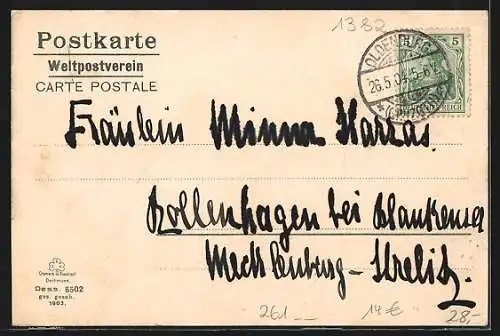 1382
Postkarte
Weltpostverein
CARTE POSTALE
OLDENBURG
5
26.5.04.5-6
Fräulein Minna Karzas.
Rollenhagen bei Blankensee
Mecklenburg-Strelitz.
Dortmund.
Dess. 5502
ges. gesch.
1903.
261 — 14 € 28,-